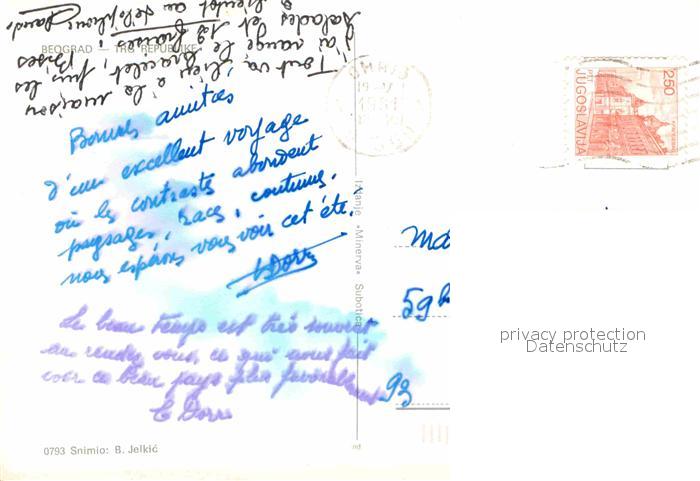 BEOGRAD — TRG REPUBLIKE
Tout va, le bracelet,
j'ai rangé le liège à la maison
puis les
salades et 12 fraises! Bises
à bientôt au téléphone
Bonnes amitiés
d'un excellent voyage
où les contrastes abondent
paysages, races, coutumes.
nous espérons vous voir cet été.
Le beau temps est très souvent
au rendez vous, ce qui nous fait
voir ce beau pays plus favorablement
OHRID
1981
2.50
JUGOSLAVIJA
Izdanje »Minerva« Subotica
Ma
59 b
93
privacy protection
Datenschutz
0793 Snimio: B. Jelkić